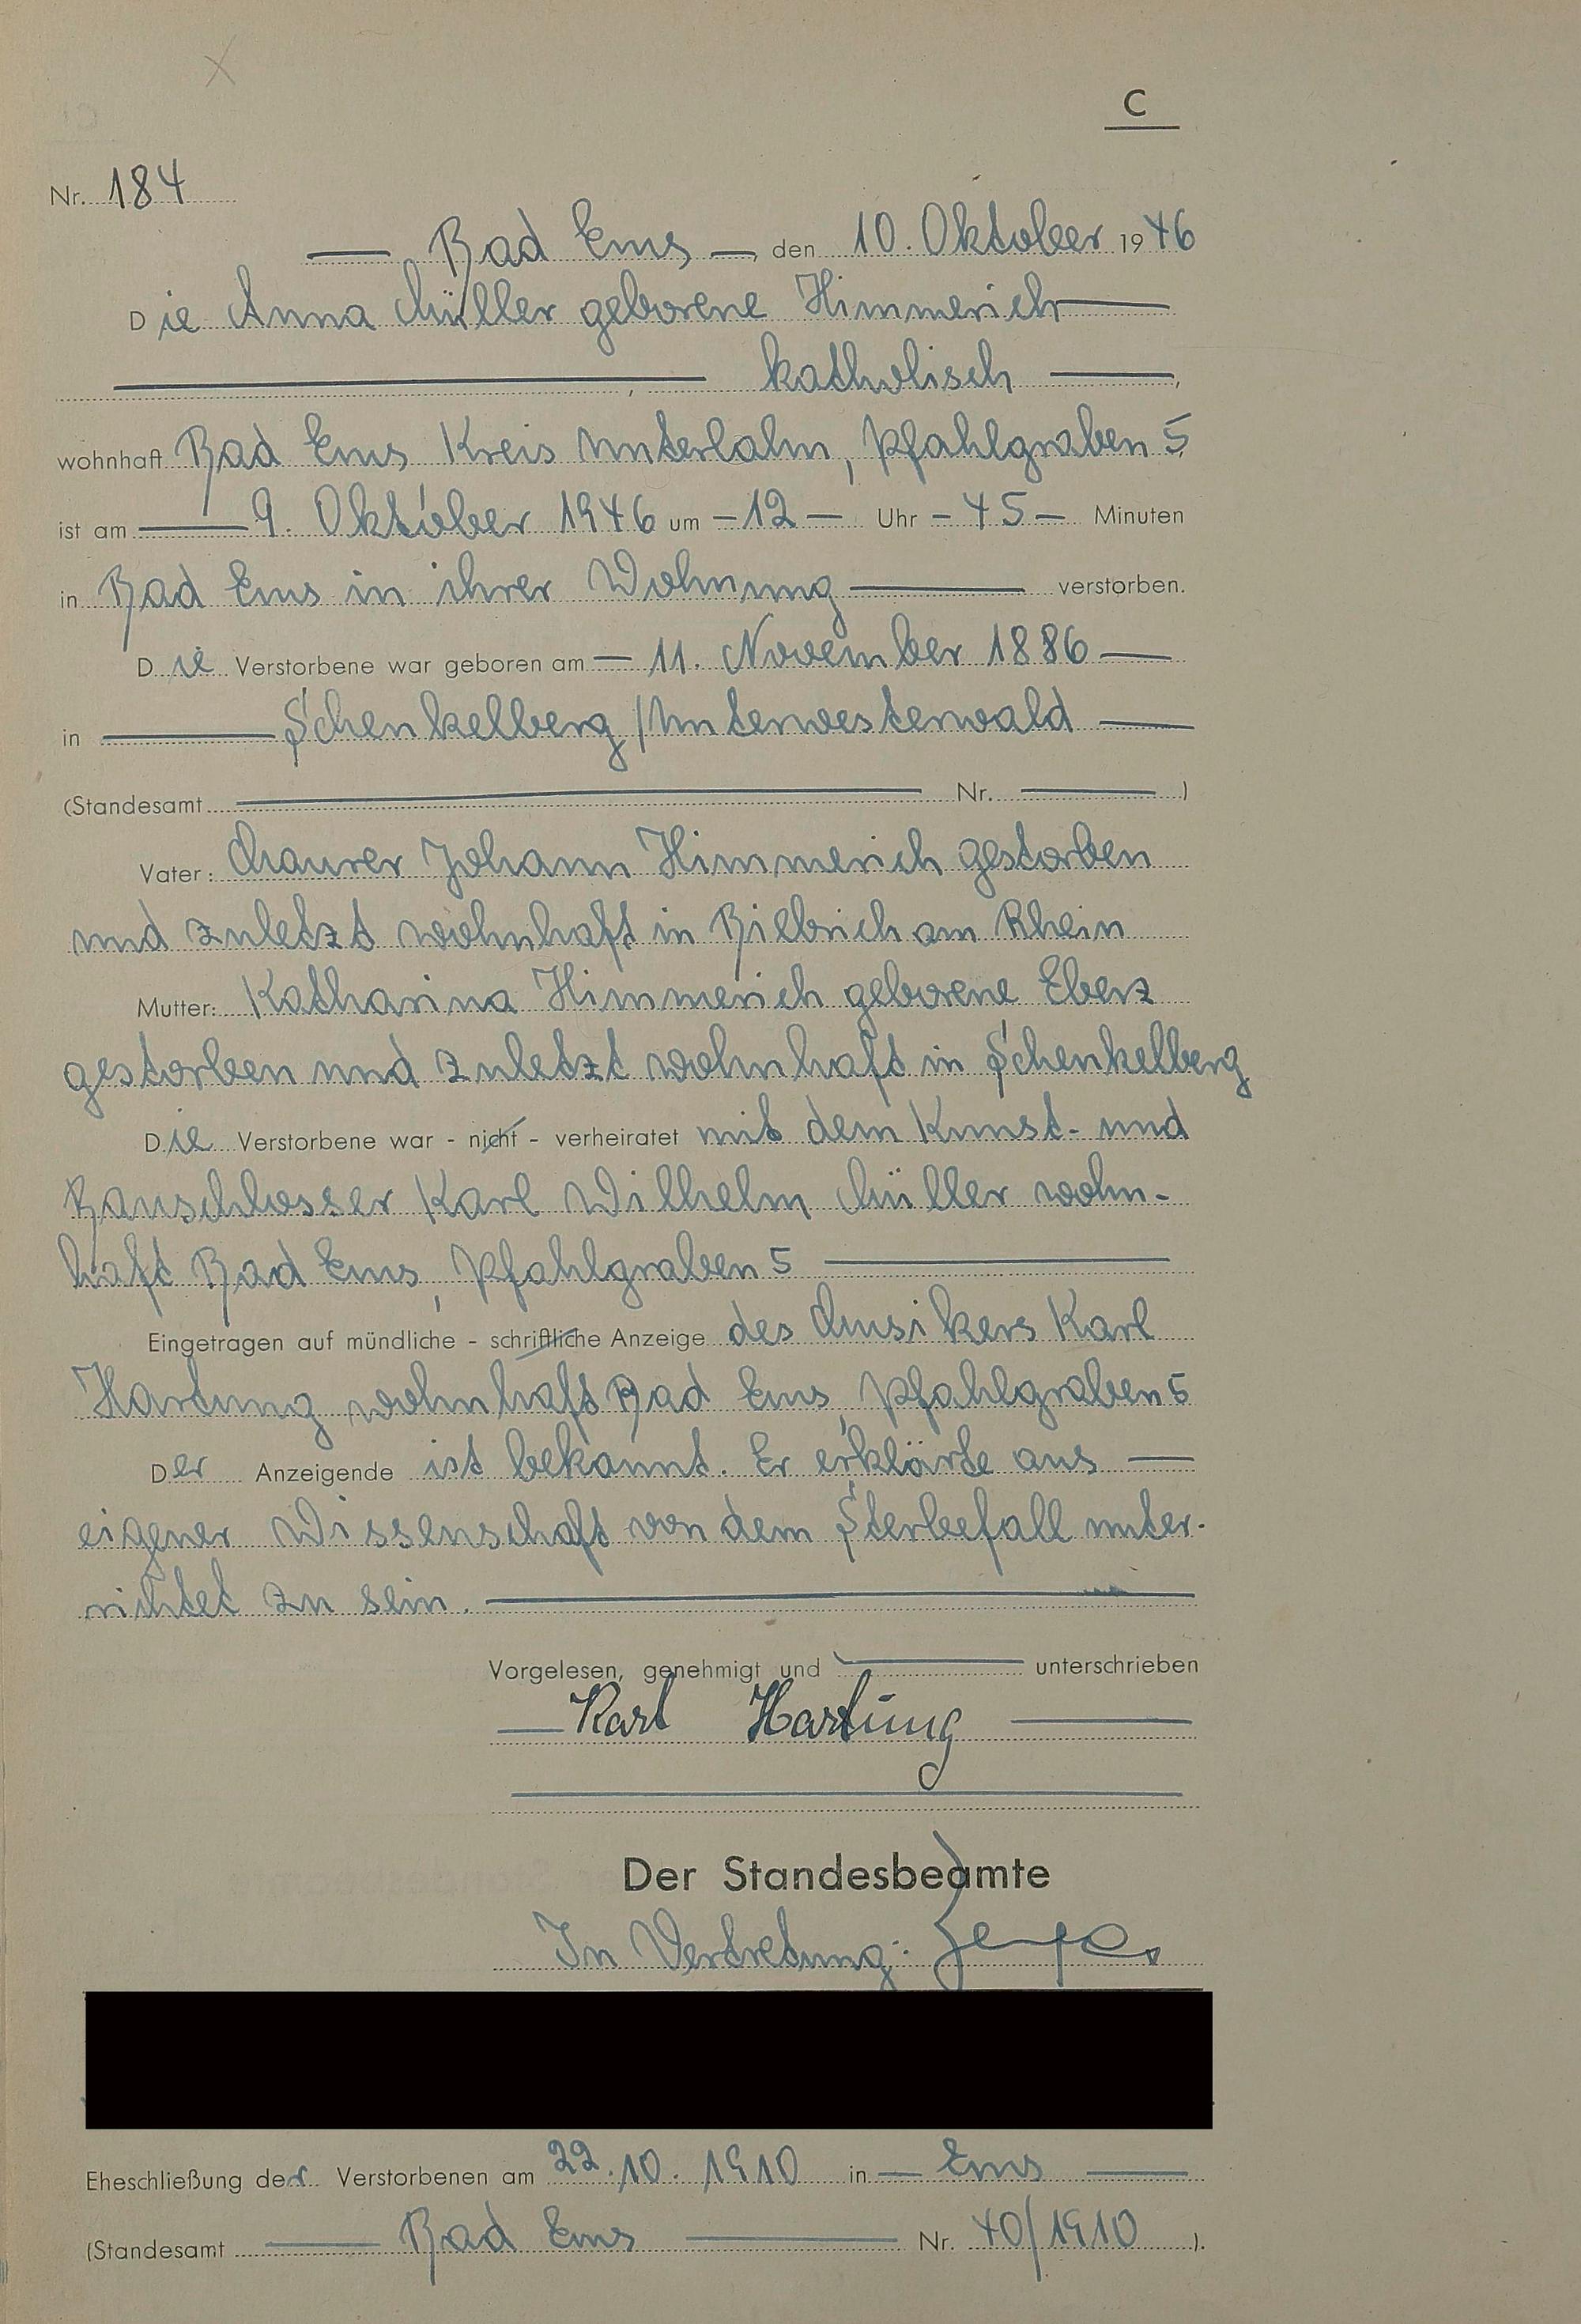 C
Nr. 184
Bad Ems, den 10. Oktober 1946
Die Anna Müller geborene Himmerich
, katholisch,
wohnhaft Bad Ems Kreis Unterlahn, Pfahlgraben 5
ist am 9. Oktober 1946 um - 12 - Uhr - 45 - Minuten
in Bad Ems in ihrer Wohnung verstorben.
Die Verstorbene war geboren am - 11. November 1886
in Schenkelberg / Unterwesterwald
(Standesamt Nr. )
Vater: Maurer Johann Himmerich gestorben
und zuletzt wohnhaft in Biebrich am Rhein
Mutter: Katharina Himmerich geborene Eberz
gestorben und zuletzt wohnhaft in Schenkelberg
Die Verstorbene war - nicht - verheiratet mit dem Kunst- und
Bauschlosser Karl Wilhelm Müller wohn-
haft Bad Ems, Pfahlgraben 5
Eingetragen auf mündliche - schriftliche Anzeige des Musikers Karl
Hartung wohnhaft Bad Ems, Pfahlgraben 5
Der Anzeigende ist bekannt. Er erklärte aus
eigener Wissenschaft von dem Sterbefall unter-
richtet zu sein.
Vorgelesen, genehmigt und unterschrieben
Karl Hartung
Der Standesbeamte
In Vertretung:
Eheschließung der Verstorbenen am 22.10.1910 in Ems
(Standesamt Bad Ems Nr. 40/1910 ).